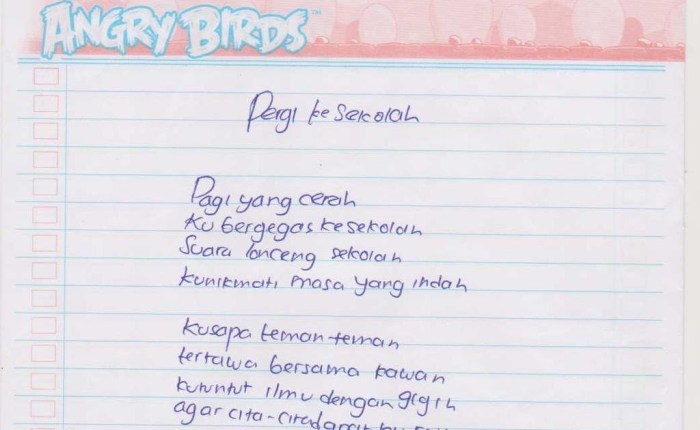 ANGRY BIRDS
Pergi ke Sekolah
Pagi yang cerah
Ku bergegas ke sekolah
Suara lonceng sekolah
kunikmati masa yang indah
kusapa teman-teman
tertawa bersama kawan
kutuntut ilmu dengan gigih
agar cita-cita dapat